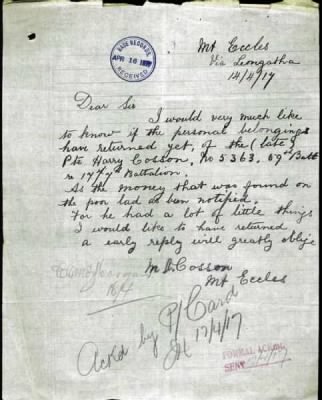 BASE RECORDS
APR 16 1917
RECEIVED
Mt Eccles
Via Leongatha
14/4/17
Dear Sir
I would very much like
to know if the personal belongings
have returned yet, of the (late)
Pte Harry Cosson, No 5363, 59th Batt
Battalion.
As the money that was found on
the poor lad as ben notified.
For he had a lot of little things
I would like to have returned
a early reply will greatly oblige
M D Cosson
Mt Eccles
Ackd by P/Card
17/4/17
FORMAL ACKN.
SENT